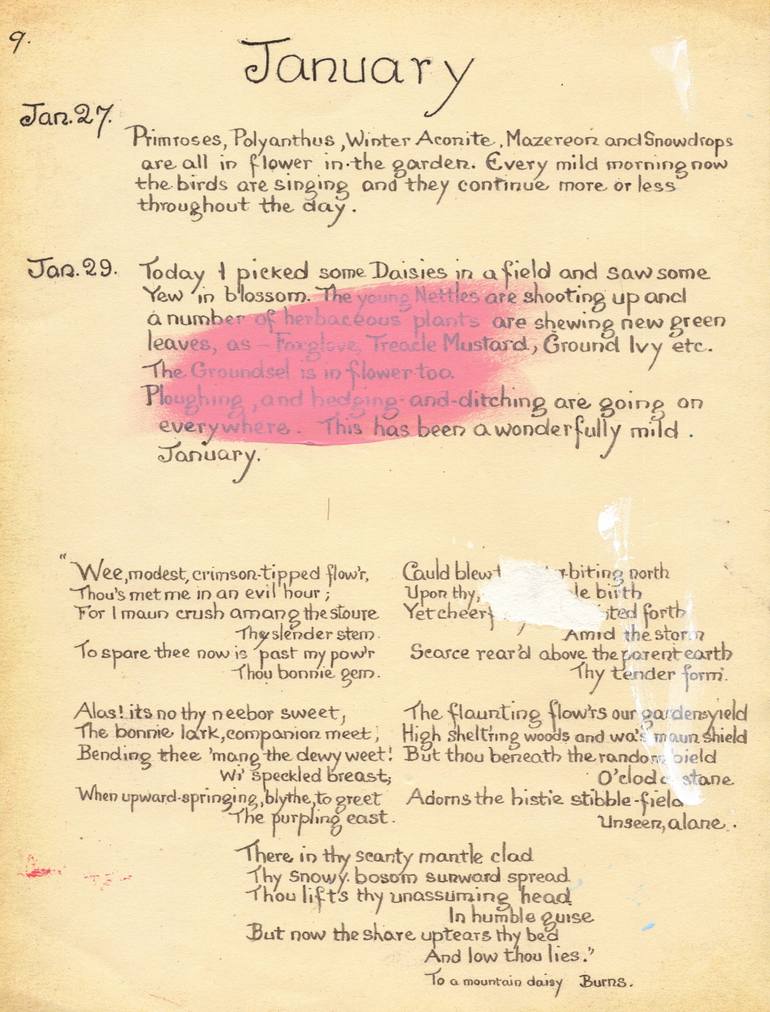 9.
January
Jan.27.
Primroses, Polyanthus, Winter Aconite, Mazereon and Snowdrops
are all in flower in the garden. Every mild morning now
the birds are singing and they continue more or less
throughout the day.
Jan.29.
Today I picked some Daisies in a field and saw some
Yew in blossom. The young Nettles are shooting up and
a number of herbaceous plants are shewing new green
leaves, as – Foxglove, Treacle Mustard, Ground Ivy etc.
The Groundsel is in flower too.
Ploughing, and hedging-and-ditching are going on
everywhere. This has been a wonderfully mild.
January.
"Wee, modest, crimson-tipped flow'r,
Thou's met me in an evil hour;
For I maun crush amang the stoure
Thy slender stem.
To spare thee now is past my pow'r
Thou bonnie gem.
Alas! its no thy neebor sweet,
The bonnie lark, companion meet;
Bending thee 'mang the dewy weet!
Wi' speckled breast,
When upward-springing, blythe, to greet
The purpling east.
Cauld blew biting north
Upon thy, birth
Yet forth
Amid the storm
Scarce rear'd above the parent earth
Thy tender form.
The flaunting flow'rs our gardens yield
High shelt'ring woods and wa's maun shield
But thou beneath the random bield
O' clod stane
Adorns the histie stibble-field
Unseen, alane.
There in thy scanty mantle clad
Thy snowy bosom sunward spread
Thou lift's thy unassuming head
In humble guise
But now the share uptears thy bed
And low thou lies."
To a mountain daisy Burns.